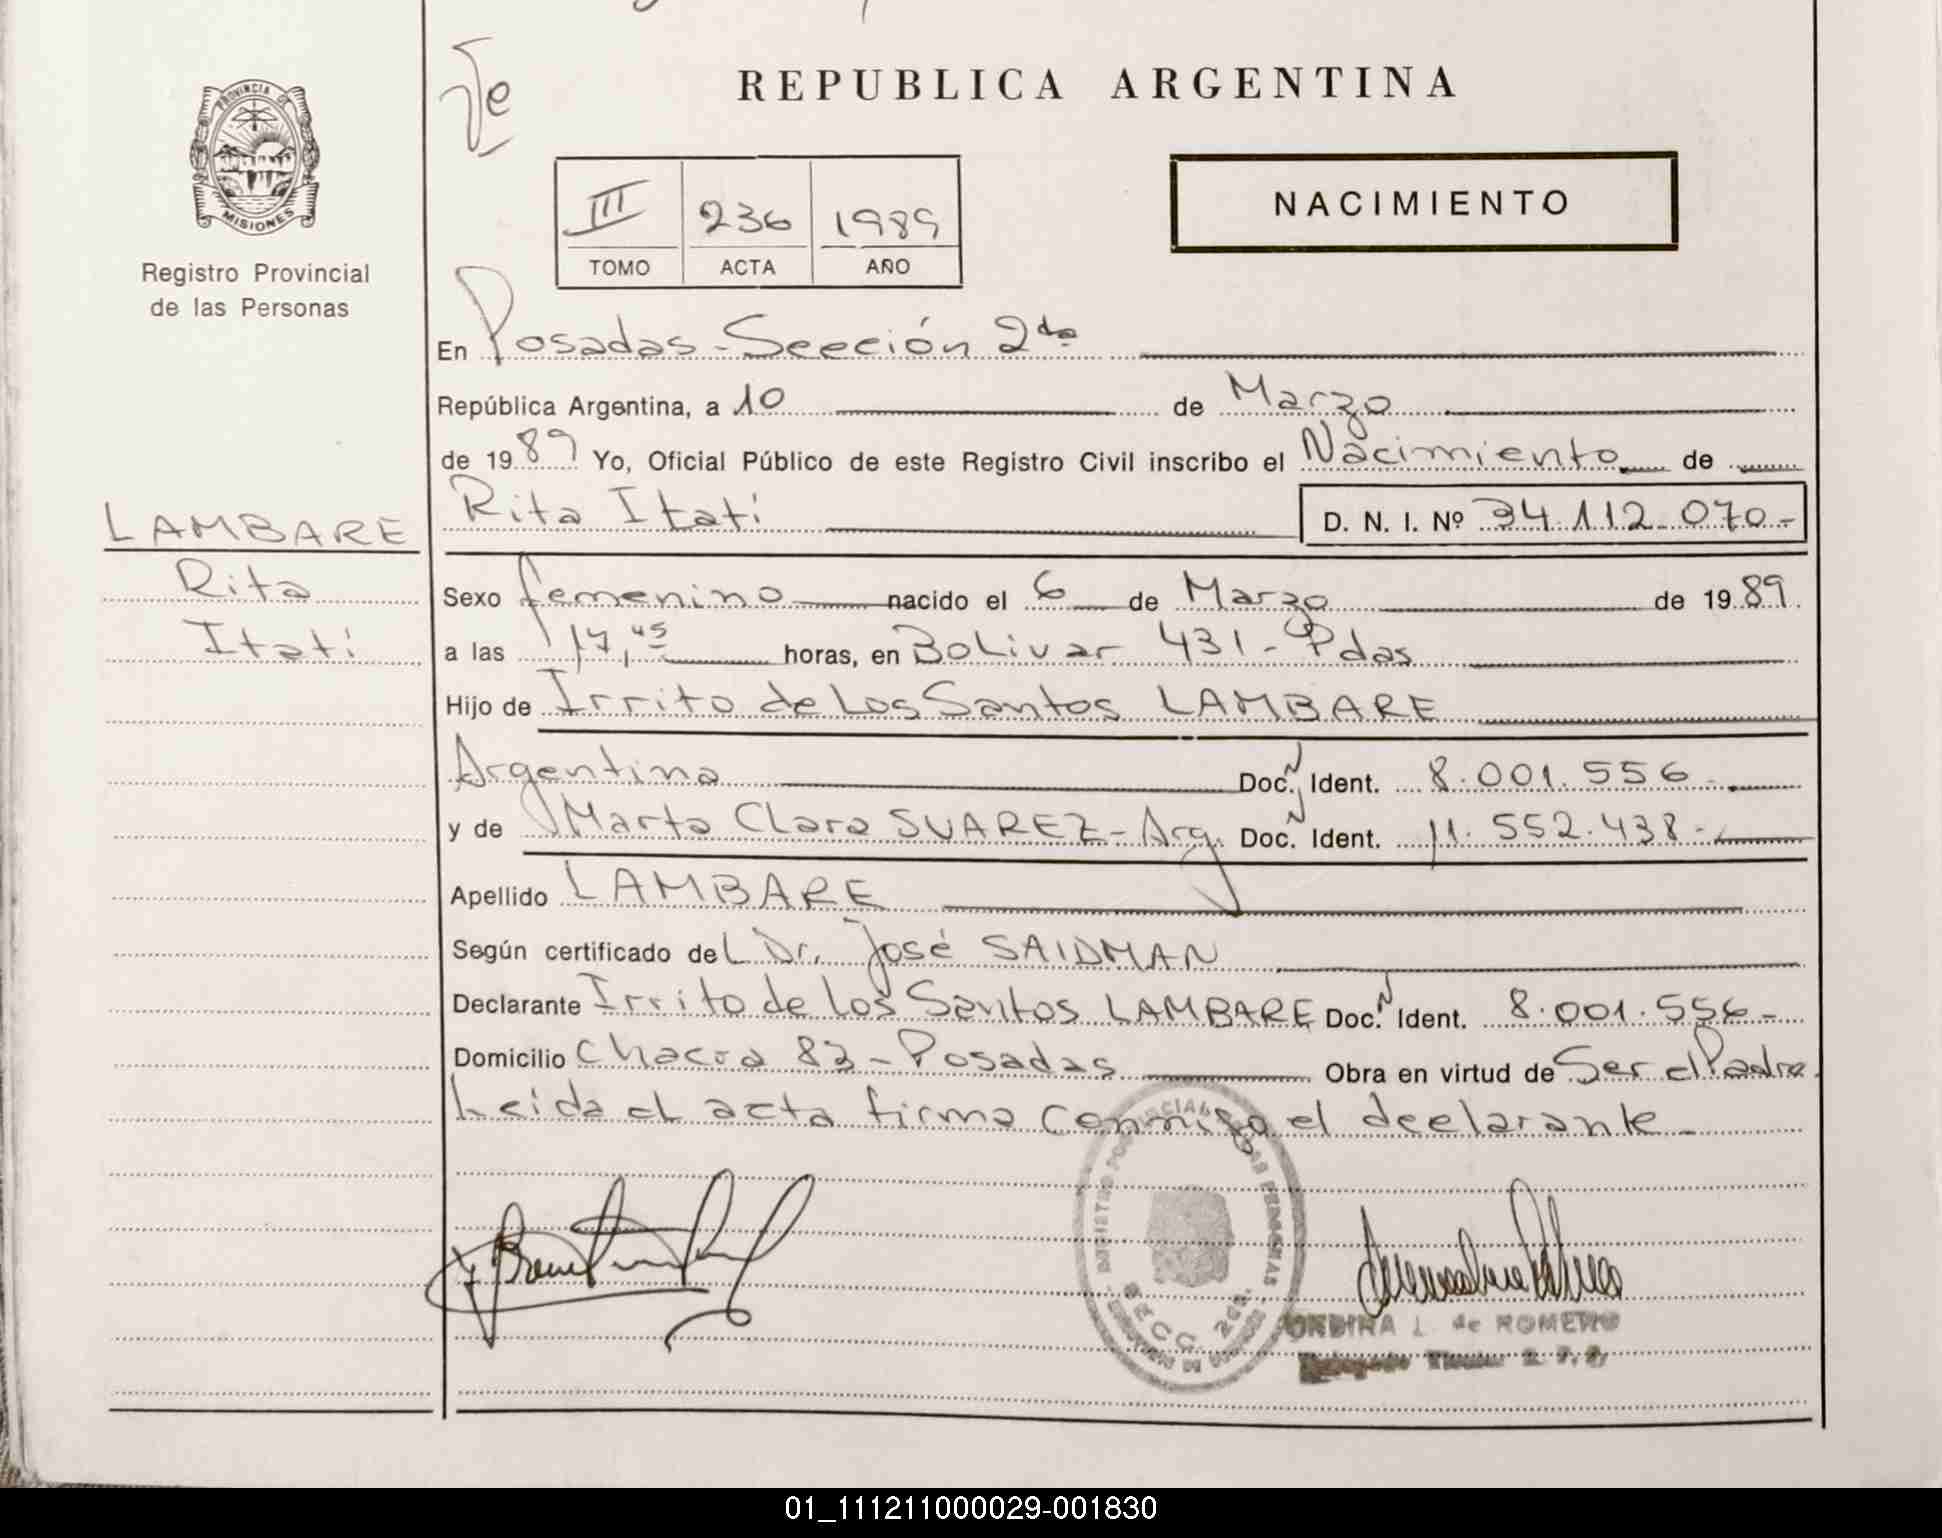 REPUBLICA ARGENTINA
PROVINCIA DE
MISIONES
Registro Provincial
de las Personas
NACIMIENTO
III 236 1989
TOMO ACTA AÑO
En Posadas - Sección 2da
República Argentina, a 10 de Marzo
de 1989 Yo, Oficial Público de este Registro Civil inscribo el Nacimiento de
Rita Itatí D. N. I. Nº 34.112.070-
LAMBARE
Rita
Itatí
Sexo femenino nacido el 6 de Marzo de 1989.
a las 17,45 horas, en Bolivar 431 - Pdas
Hijo de Irrito de Los Santos LAMBARE
Argentina Doc. N Ident. 8.001.556-
y de Marta Clara SUAREZ - Arg. Doc. N Ident. 11.552.438-
Apellido LAMBARE
Según certificado del Dr. José SAIDMAN
Declarante Irrito de los Santos LAMBARE Doc. N Ident. 8.001.556-
Domicilio Chacra 83 - Posadas Obra en virtud de Ser el Padre.
Leida el acta firma conmigo el declarante-
SECC. 2da.
L. de ROMERO
01_111211000029-001830